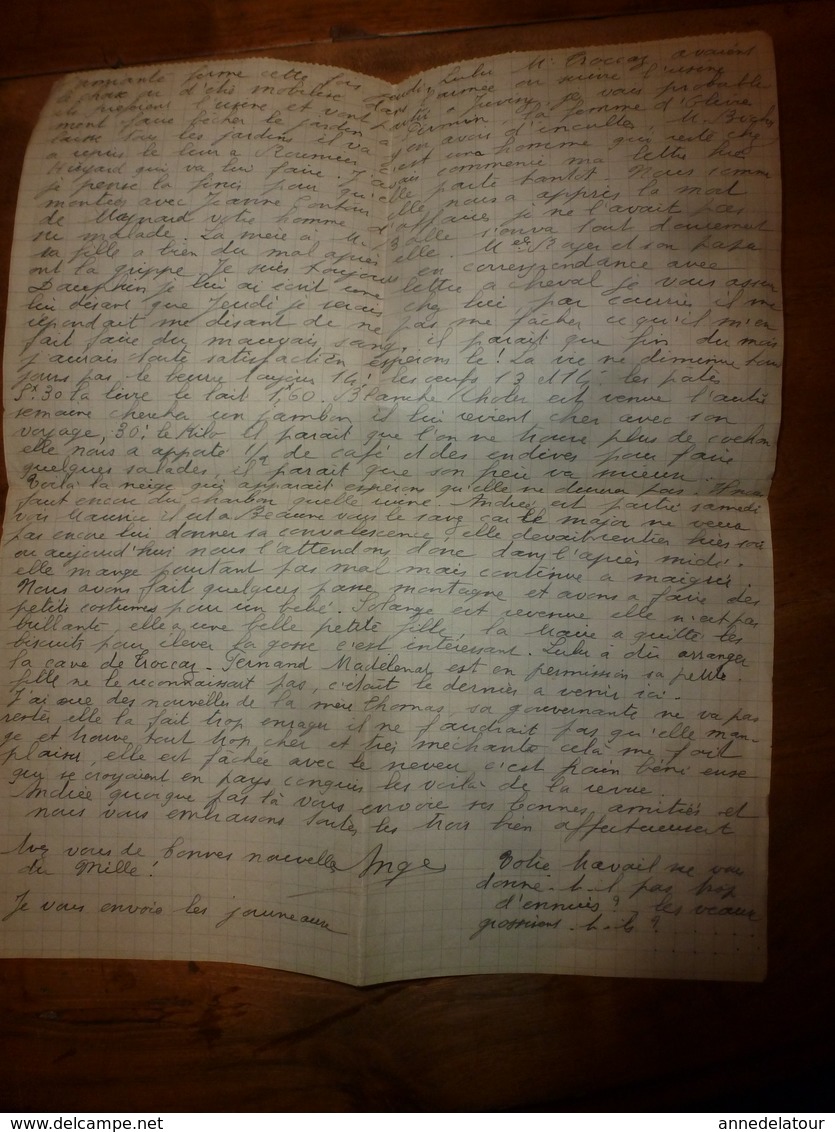 ormante ferme cette fois Lulu Mr Troccaz avaient
la peur d'être mobilisé dans journée ou suivre l'usine
ils prennent l'usine et vont partir à Juvisy je vous probable
ment faire bêcher le jardin à la femme d'Olivier
laisse tous les jardins il va y en avoir d'incultes, M.
a repris le leur à c'est un homme qui reste chez
qui va lui faire. J'avais commencé ma lettre hier
je pense la finir pour qu'elle parte tantôt. Nous sommes
montées avec Jeanne elle nous a appris la mort
de votre homme d'affaires je ne l'avais pas
su malade. La mère à Mr elle s'en va tout doucement
sa fille a bien du mal après elle. Mr Bojer et son papa
ont la grippe. Je suis toujours en correspondance avec
Dauphin je lui ai écrit une lettre à cheval je vous assure
lui disant que Jeudi je serais chez lui par courrier il me
répondait me disant de ne pas me fâcher ce qu'il m'en
fait faire du mauvais sang, il parait que fin du mois
j'aurais toute satisfaction espérons le! La vie ne diminue tou
jours pas le beurre toujours 14f les oeufs 13 et 14f les pâtes
5f30 la livre le lait 1,60. Blanche est venue l'autre
semaine chercher un jambon il lui revient cher avec son
voyage, 30f le Kilo il parait que l'on ne trouve plus de cochon
elle nous a apporté 1/2 de café et des endives pour faire
quelques salades, il parait que son frère va mieux.
Voilà la neige qui apparait espérons qu'elle ne durera pas.
faut encore du charbon quelle ruine. Andrée est partie samedi
voir Maurice il est à Beaune vous le savez car le major ne veut
pas encore lui donner sa convalescence, elle devait rentrer hier soir
ou aujourd'hui nous l'attendons donc dans l'après midi.
elle mange pourtant pas mal mais continue à maigrir.
Nous avons fait quelques passe montagne et avons à faire des
petits costumes pour un bébé. Solange est revenue elle n'est pas
brillante, elle a une belle petite fille, la Marie a quitté les
biscuits pour élever la gosse c'est intéressant. Lulu a dû arranger
la cave de Troccaz. Fernand Madelenat est en permission sa petite
fille ne le reconnaissait pas, c'était le dernier à venir ici.
J'ai eue des nouvelles de la mère Thomas, sa gouvernante ne va pas
rester elle la fait trop enrager il ne faudrait pas qu'elle man-
ge et trouve tout trop cher et très méchante cela me fait
plaisir, elle est fâchée avec le neveu c'est pain béni eux
qui se croyaient en pays conquis les voilà de la revue.
Andrée quoique pas là vous envoie ses bonnes amitiés et
nous vous embrassons toutes les trois bien affectueusement
Ange
Avez vous de bonnes nouvelles
du Mille!
Je vous envoie les journeaux
Votre travail ne vous
donne-t-il pas trop
d'ennuis?, les veaux
grossissent-ils?
annedelatour